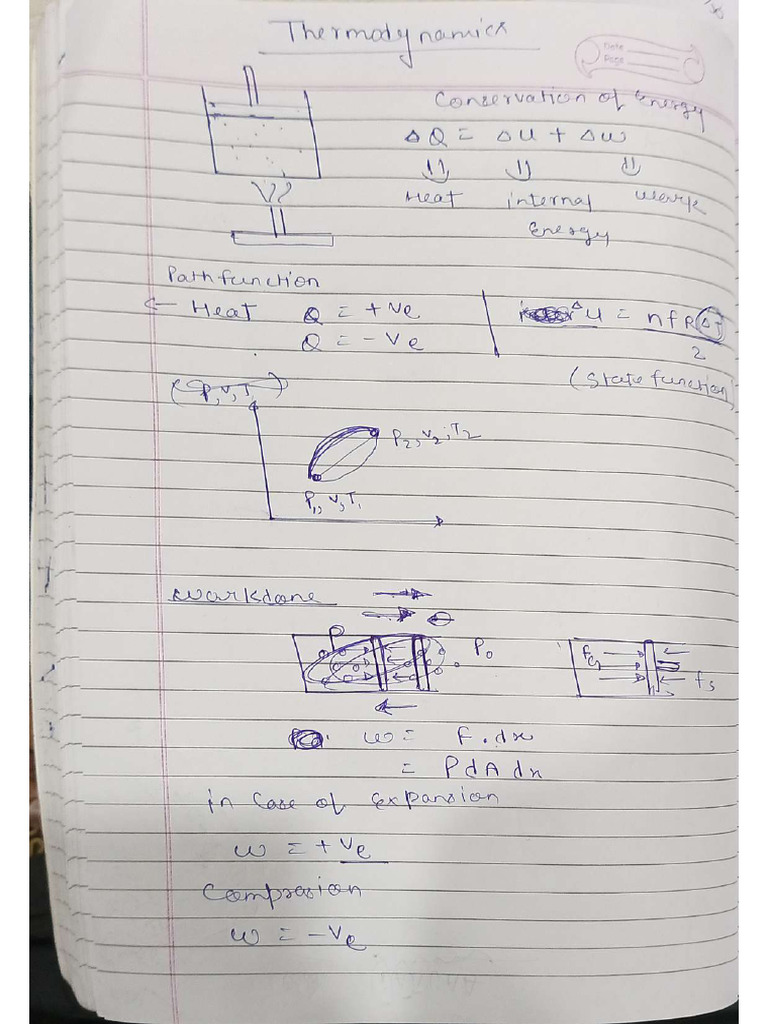 Thermodynamics
Date
Page
Conservation of Energy
ΔQ = ΔU + Δw
Heat internal work
Energy
Path function
← Heat Q = +ve
Q = -ve
ΔU = nfRΔT
2
(State function)
(P, V, T)
P2, V2, T2
P1, V, T1
Workdone
P P0
fg
fs
w = F.dx
= PdAdx
in case of Expansion
w = +ve
Comprasion
w = -ve